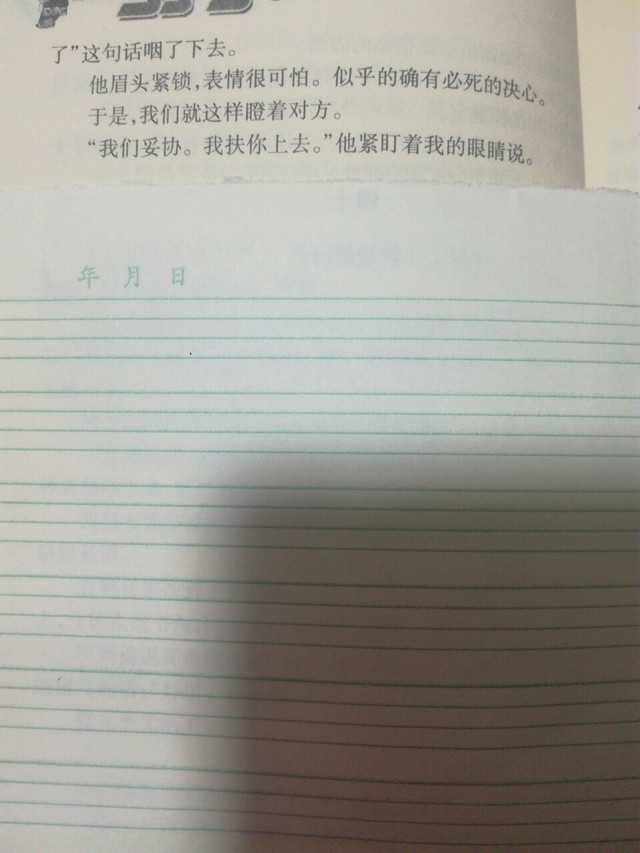 了”这句话咽了下去。
他眉头紧锁，表情很可怕。似乎的确有必死的决心。
于是，我们就这样瞪着对方。
“我们妥协。我扶你上去。”他紧盯着我的眼睛说。
年 月 日